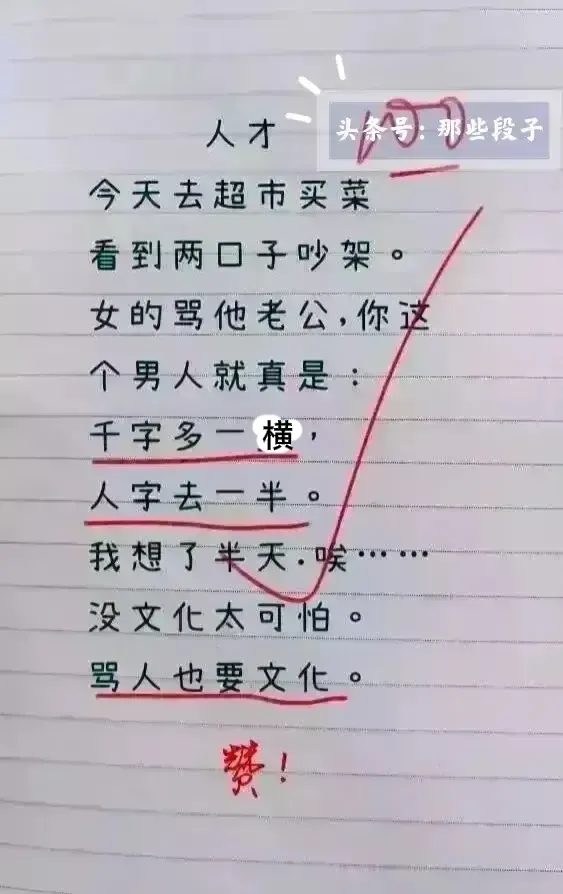 人才
头条号：那些段子
今天去超市买菜
看到两口子吵架。
女的骂他老公，你这
个男人就真是：
千字多一横，
人字去一半。
我想了半天.唉……
没文化太可怕。
骂人也要文化。
赞！